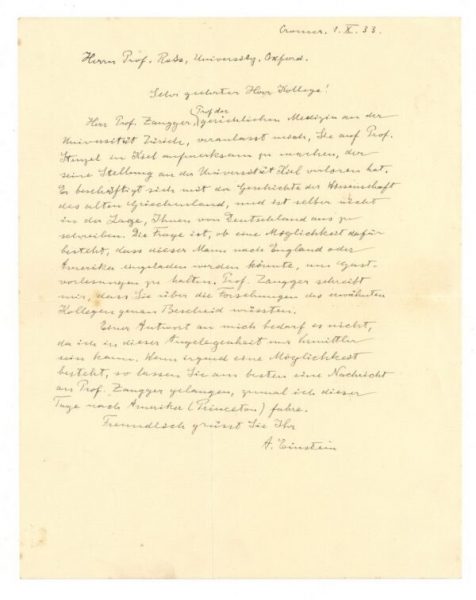 Cromer. 1. X. 33.
Herrn Prof. Ross, University, Oxford.
Sehr geehrter Herr Kollege!
Prof der
Herr Prof. Zangger, gerichtlichen Medizin an der
Universität Zürich, veranlasst mich, Sie auf Prof.
Stenzel in Kiel aufmerksam zu machen, der
seine Stellung an der Universität Kiel verloren hat.
Er beschäftigt sich mit der Geschichte der Wissenschaft
des alten Griechenland, und ist selber nicht
in der Lage, Ihnen von Deutschland aus zu
schreiben. Die Frage ist, ob eine Möglichkeit dafür
besteht, dass dieser Mann nach England oder
Amerika eingeladen werden könnte, um Gast-
vorlesungen zu halten. Prof. Zangger schreibt
mir, dass Sie über die Forschungen des erwähnten
Kollegen genau Bescheid wüssten.
Einer Antwort an mich bedarf es nicht,
da ich in dieser Angelegenheit nur Vermittler
sein kann. Wenn irgend eine Möglichkeit
besteht, so lassen Sie am besten eine Nachricht
an Prof. Zangger gelangen, zumal ich dieser
Tage nach Amerika (Princeton) fahre.
Freundlich grüsst Sie Ihr
A. Einstein